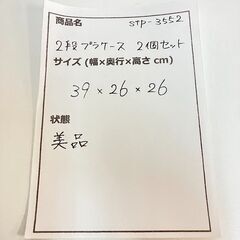 商品名 STP-3552
2段プラケース 2個セット
サイズ (幅×奥行×高さ cm)
39 × 26 × 26
状態
美品